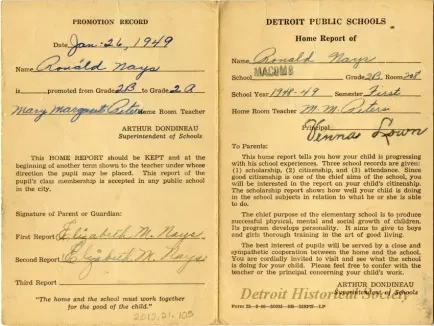 PROMOTION RECORD
Date Jan. 26, 1949
Name Ronald Nays
is promoted from Grade 2B to Grade 2A
Mary Margaret Peters Home Room Teacher
ARTHUR DONDINEAU
Superintendent of Schools
This HOME REPORT should be KEPT and at the
beginning of another term shown to the teacher under whose
direction the pupil may be placed. This report of the
pupil's class membership is accepted in any public school
in the city.
Signature of Parent or Guardian:
First Report Elizabeth M. Nays
Second Report Elizabeth M. Nays
Third Report
"The home and the school must work together
for the good of the child."
2013.21.105
DETROIT PUBLIC SCHOOLS
Home Report of
Name Ronald Nays
School MACOMB Grade 2B Room 208
School Year 1948-49 Semester First
Home Room Teacher M. M. Peters
Principal Venna Lown
To Parents:
This home report tells you how your child is progressing
with his school experiences. Three school records are given:
(1) scholarship, (2) citizenship, and (3) attendance. Since
good citizenship is one of the chief aims of the school, you
will be interested in the report on your child's citizenship.
The scholarship report shows how well your child is doing
in the school subjects in relation to what he or she is able
to do.
The chief purpose of the elementary school is to produce
successful physical, mental and social growth of children.
Its program develops personality. It aims to give to boys
and girls thorough training in the art of good living.
The best interest of pupils will be served by a close and
sympathetic cooperation between the home and the school.
You are cordially invited to visit and see what the school
is doing for your child. Please feel free to confer with the
teacher or the principal concerning your child's work.
ARTHUR DONDINEAU
Superintendent of Schools
Detroit Historical Society
Form